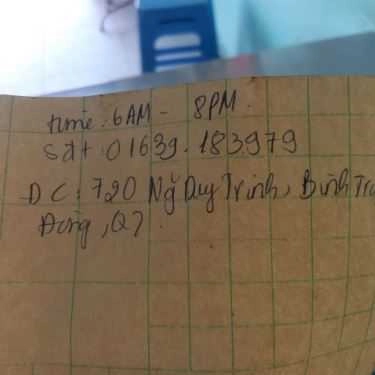 time: 6AM - 8PM.
sđt: 01639.183979
DC: 720 Ng Duy Trinh, Bình Tr
Đông, Q7.